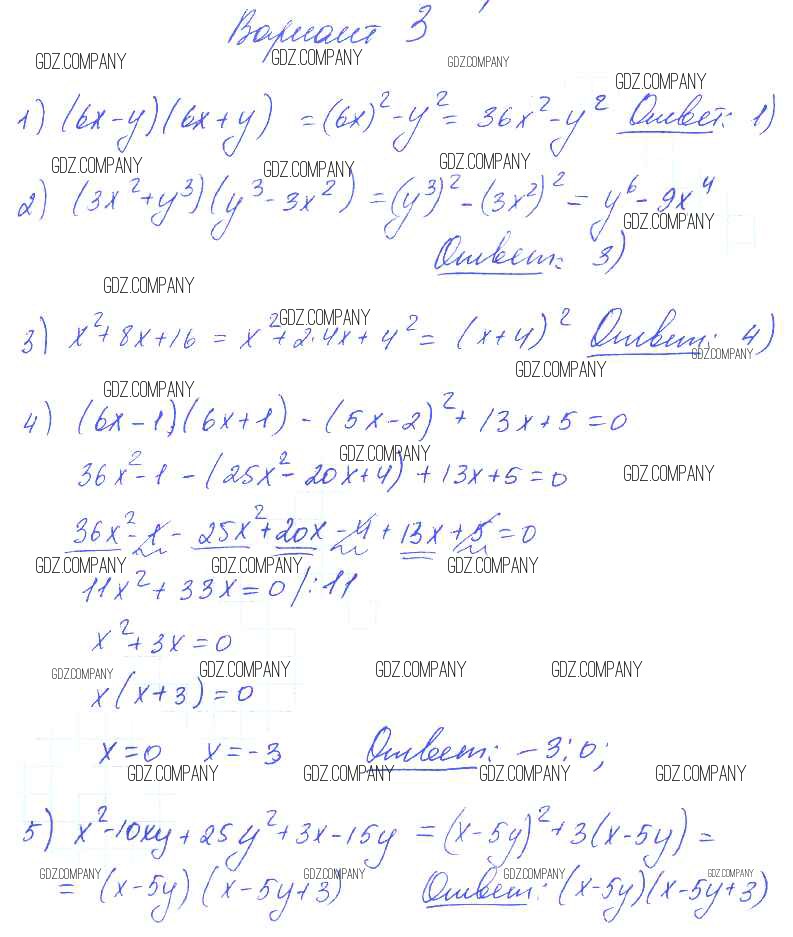 Вариант 3
GDZ.COMPANY GDZ.COMPANY GDZ.COMPANY
GDZ.COMPANY
1) (6x-y)(6x+y) = (6x)² - y² = 36x² - y² Ответ: 1)
GDZ.COMPANY GDZ.COMPANY GDZ.COMPANY
2) (3x²+y³)(y³-3x²) = (y³)² - (3x²)² = y⁶ - 9x⁴
GDZ.COMPANY
Ответ: 3)
GDZ.COMPANY
GDZ.COMPANY
3) x²+8x+16 = x²+2·4x+4² = (x+4)² Ответ: 4)
GDZ.COMPANY
GDZ.COMPANY
GDZ.COMPANY
4) (6x-1)(6x+1) - (5x-2)² + 13x+5 = 0
GDZ.COMPANY
36x²-1 - (25x²-20x+4) + 13x+5 = 0
GDZ.COMPANY
36x²-1 - 25x²+20x-4+13x+5 = 0
GDZ.COMPANY GDZ.COMPANY GDZ.COMPANY
11x²+33x=0 /:11
x²+3x=0
GDZ.COMPANY GDZ.COMPANY GDZ.COMPANY GDZ.COMPANY
x(x+3)=0
x=0 x=-3 Ответ: -3; 0;
GDZ.COMPANY GDZ.COMPANY GDZ.COMPANY GDZ.COMPANY
5) x²-10xy+25y²+3x-15y = (x-5y)²+3(x-5y) =
GDZ.COMPANY GDZ.COMPANY GDZ.COMPANY GDZ.COMPANY
= (x-5y)(x-5y+3) Ответ: (x-5y)(x-5y+3)